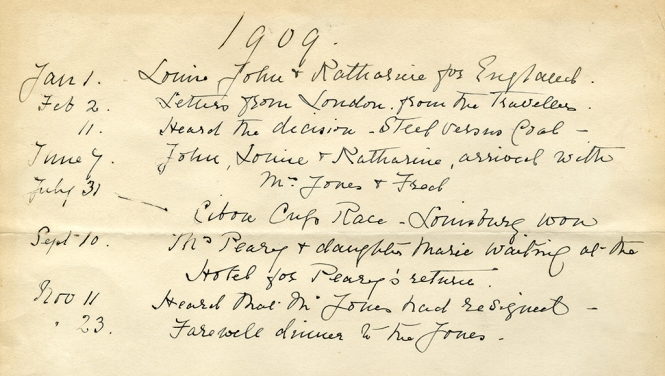 1909.
Jan 1. Louise John & Katharine for England.
Feb 2. Letters from London. from the Travellers.
11. Heard the decision - Steel versus Coal -
June 7. John, Louise & Katharine, arrived with
Mr Jones & Fred
July 31 — Cibou Cup Race - Louisburg won
Sept 10. Mrs Peary & daughter Marie waiting at the
Hotel for Peary's return.
Nov 11 Heard that Mr Jones had resigned -
" 23. Farewell dinner to the Jones.